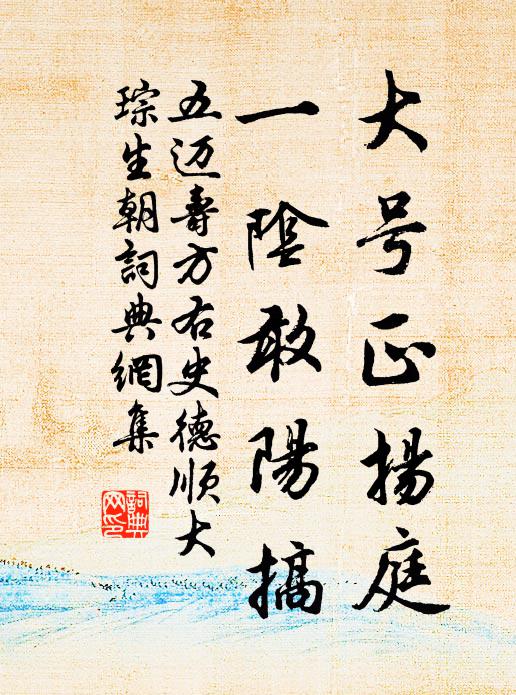 大号正揚庭
一陰敢陽搞
五迈壽方右史德順大
琮生朝詞典網集
詞典網印